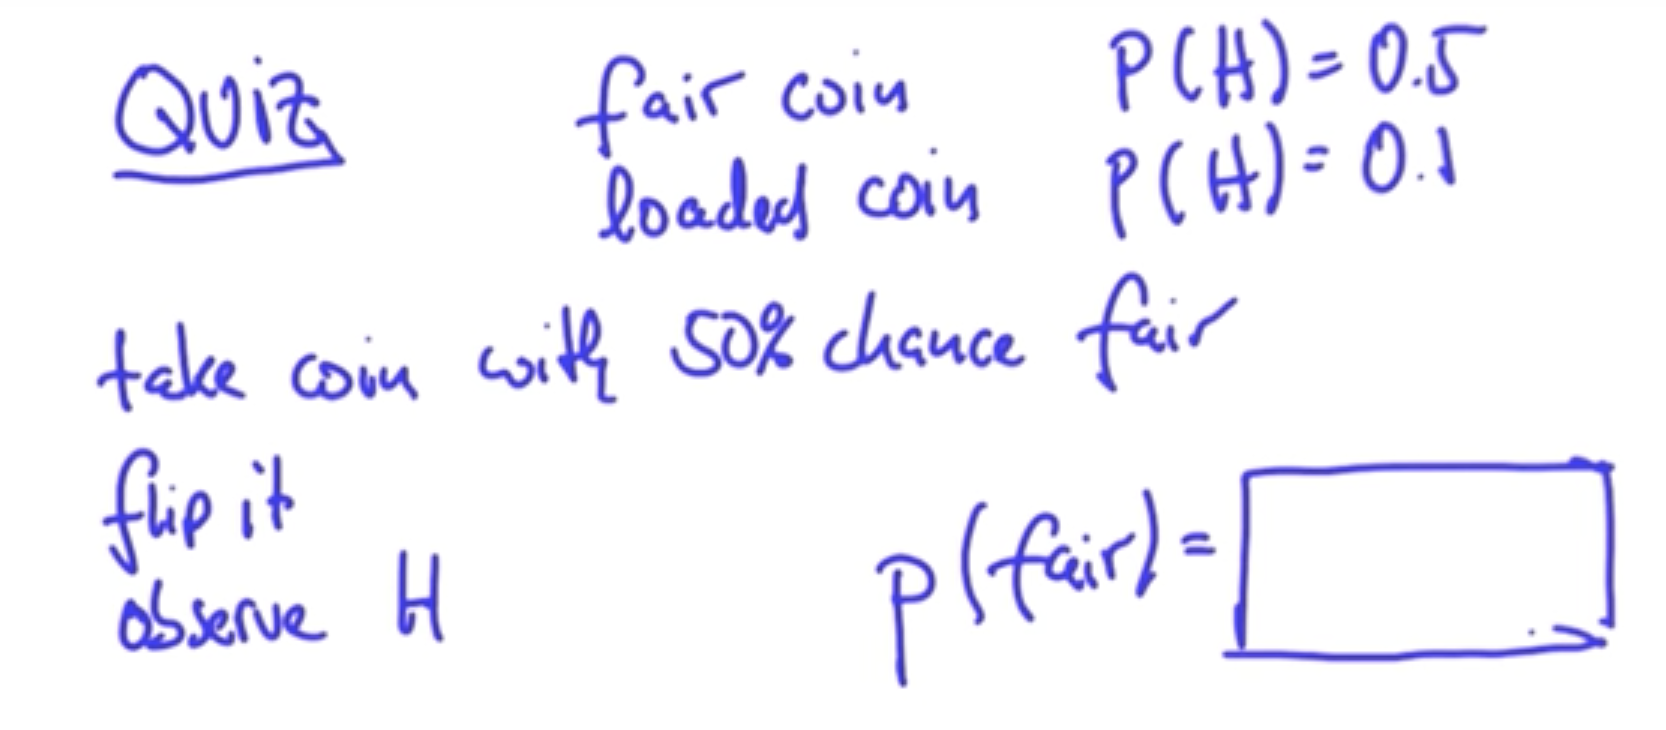 Quiz fair coin P(H) = 0.5
loaded coin P(H) = 0.1
take coin with 50% chance fair
flip it
observe H
P(fair) =